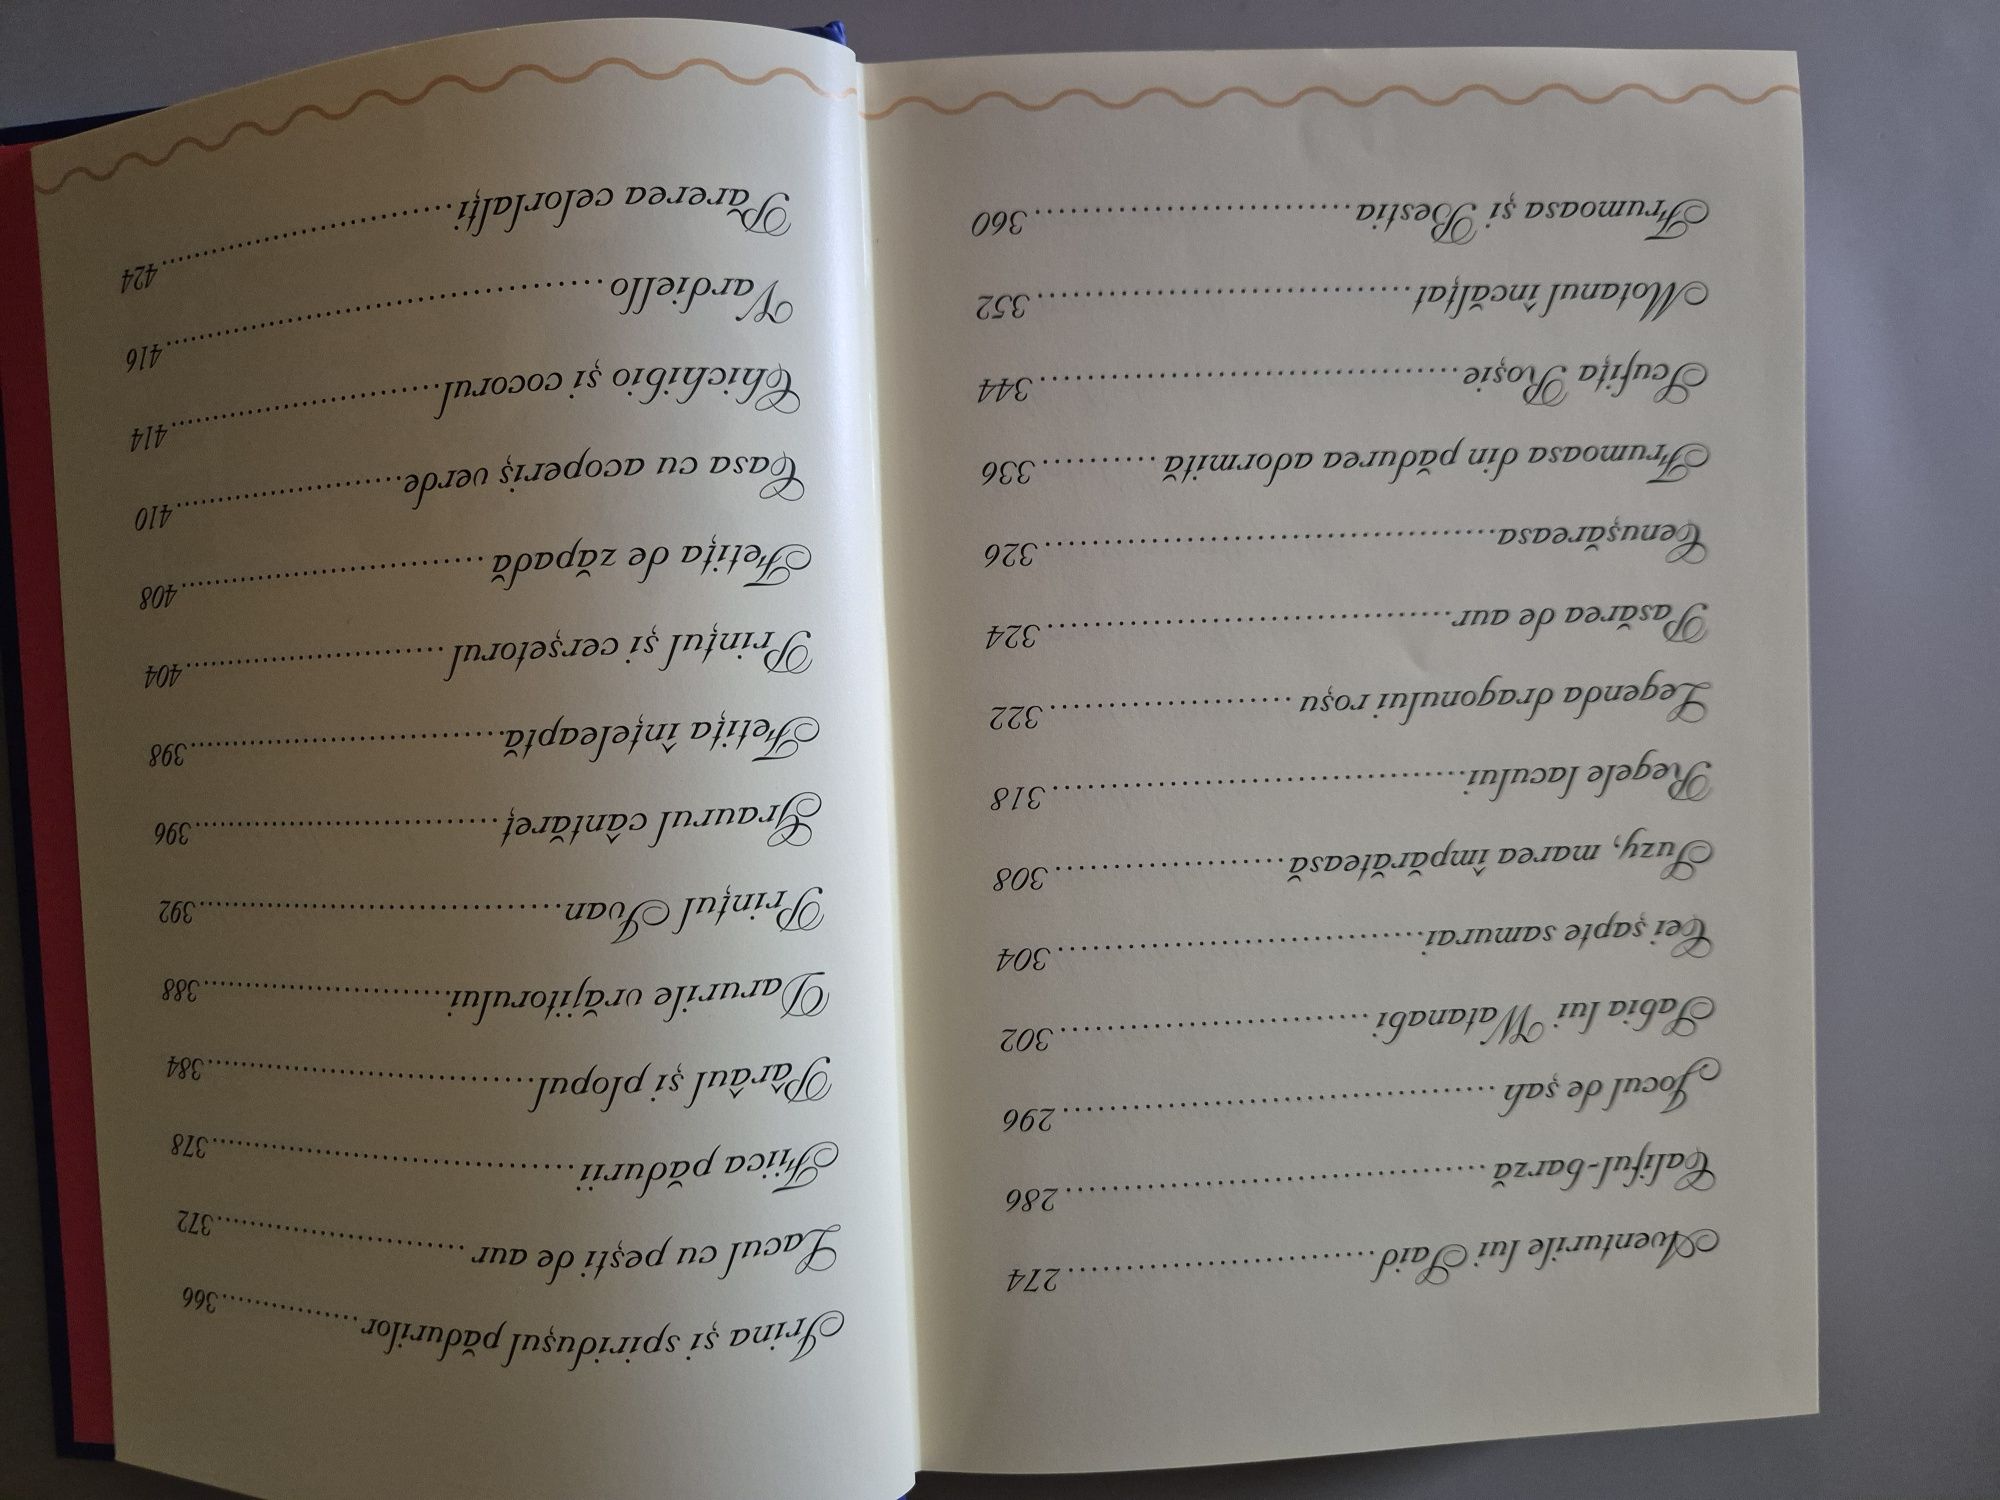 Aventurile lui Said..........................274
Califul-barză..........................286
Jocul de șah..........................296
Sabia lui Watanabi..........................302
Cei șapte samurai..........................304
Suzy, marea împărăteasă..........................308
Regele lacului..........................318
Legenda dragonului roșu..........................322
Pasărea de aur..........................324
Cenușăreasa..........................326
Frumoasa din pădurea adormită..........................336
Scufița Roșie..........................344
Motanul încălțat..........................352
Frumoasa și Bestia..........................360
Irina și spiridușul pădurilor..........................366
Lacul cu pești de aur..........................372
Fiica pădurii..........................378
Pârâul și plopul..........................384
Darurile vrăjitorului..........................388
Prințul Ivan..........................392
Graurul cântăreț..........................396
Fetița înțeleaptă..........................398
Prințul și cerșetorul..........................404
Fetița de zăpadă..........................408
Casa cu acoperiș verde..........................410
Chichibio și cocorul..........................414
Vardiello..........................416
Părerea celorlalți..........................424